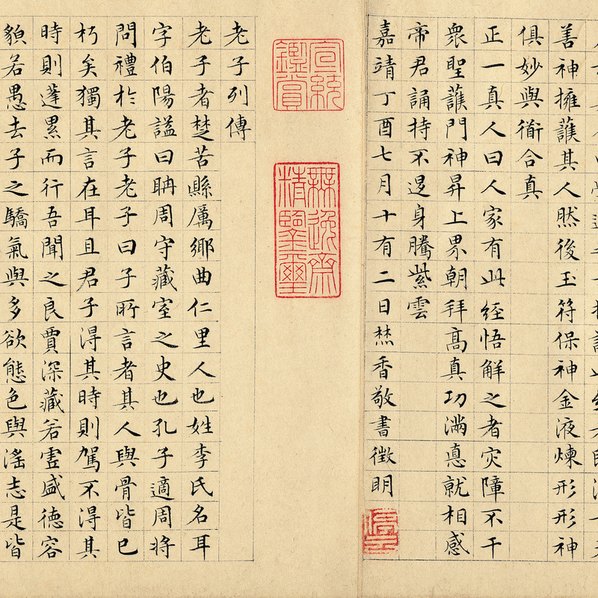 善神擁護其人然後玉符保神金液煉形形神
俱妙與衜合真
正一真人曰人家有此經悟解之者灾障不干
衆聖護門神昇上界朝拜高真功滿悳就相感
帝君誦持不退身騰紫雲
嘉靖丁酉七月十有二日焚香敬書徵明
宣統
鑑賞
無逸齋
精鑒璽
老子列傳
老子者楚苦縣厲鄉曲仁里人也姓李氏名耳
字伯陽謚曰聃周守藏室之史也孔子適周將
問禮於老子老子曰子所言者其人與骨皆已
朽矣獨其言在耳且君子得其時則駕不得其
時則蓬累而行吾聞之良賈深藏若虛盛德容
貌若愚去子之驕氣與多欲態色與淫志是皆